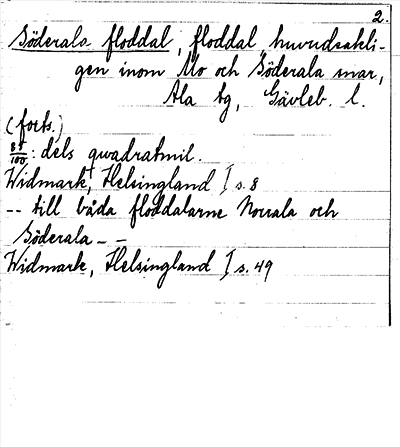 2.
Söderala floddal, floddal huvudsakli-
gen inom Mo och Söderala snar,
Ala tg, Gävleb. l.
(forts.)
87/100: dels qwadratmil.
Widmark, Helsingland I s. 8
-- till båda floddalarne Norrala och
Söderala --
Widmark, Helsingland I s. 49